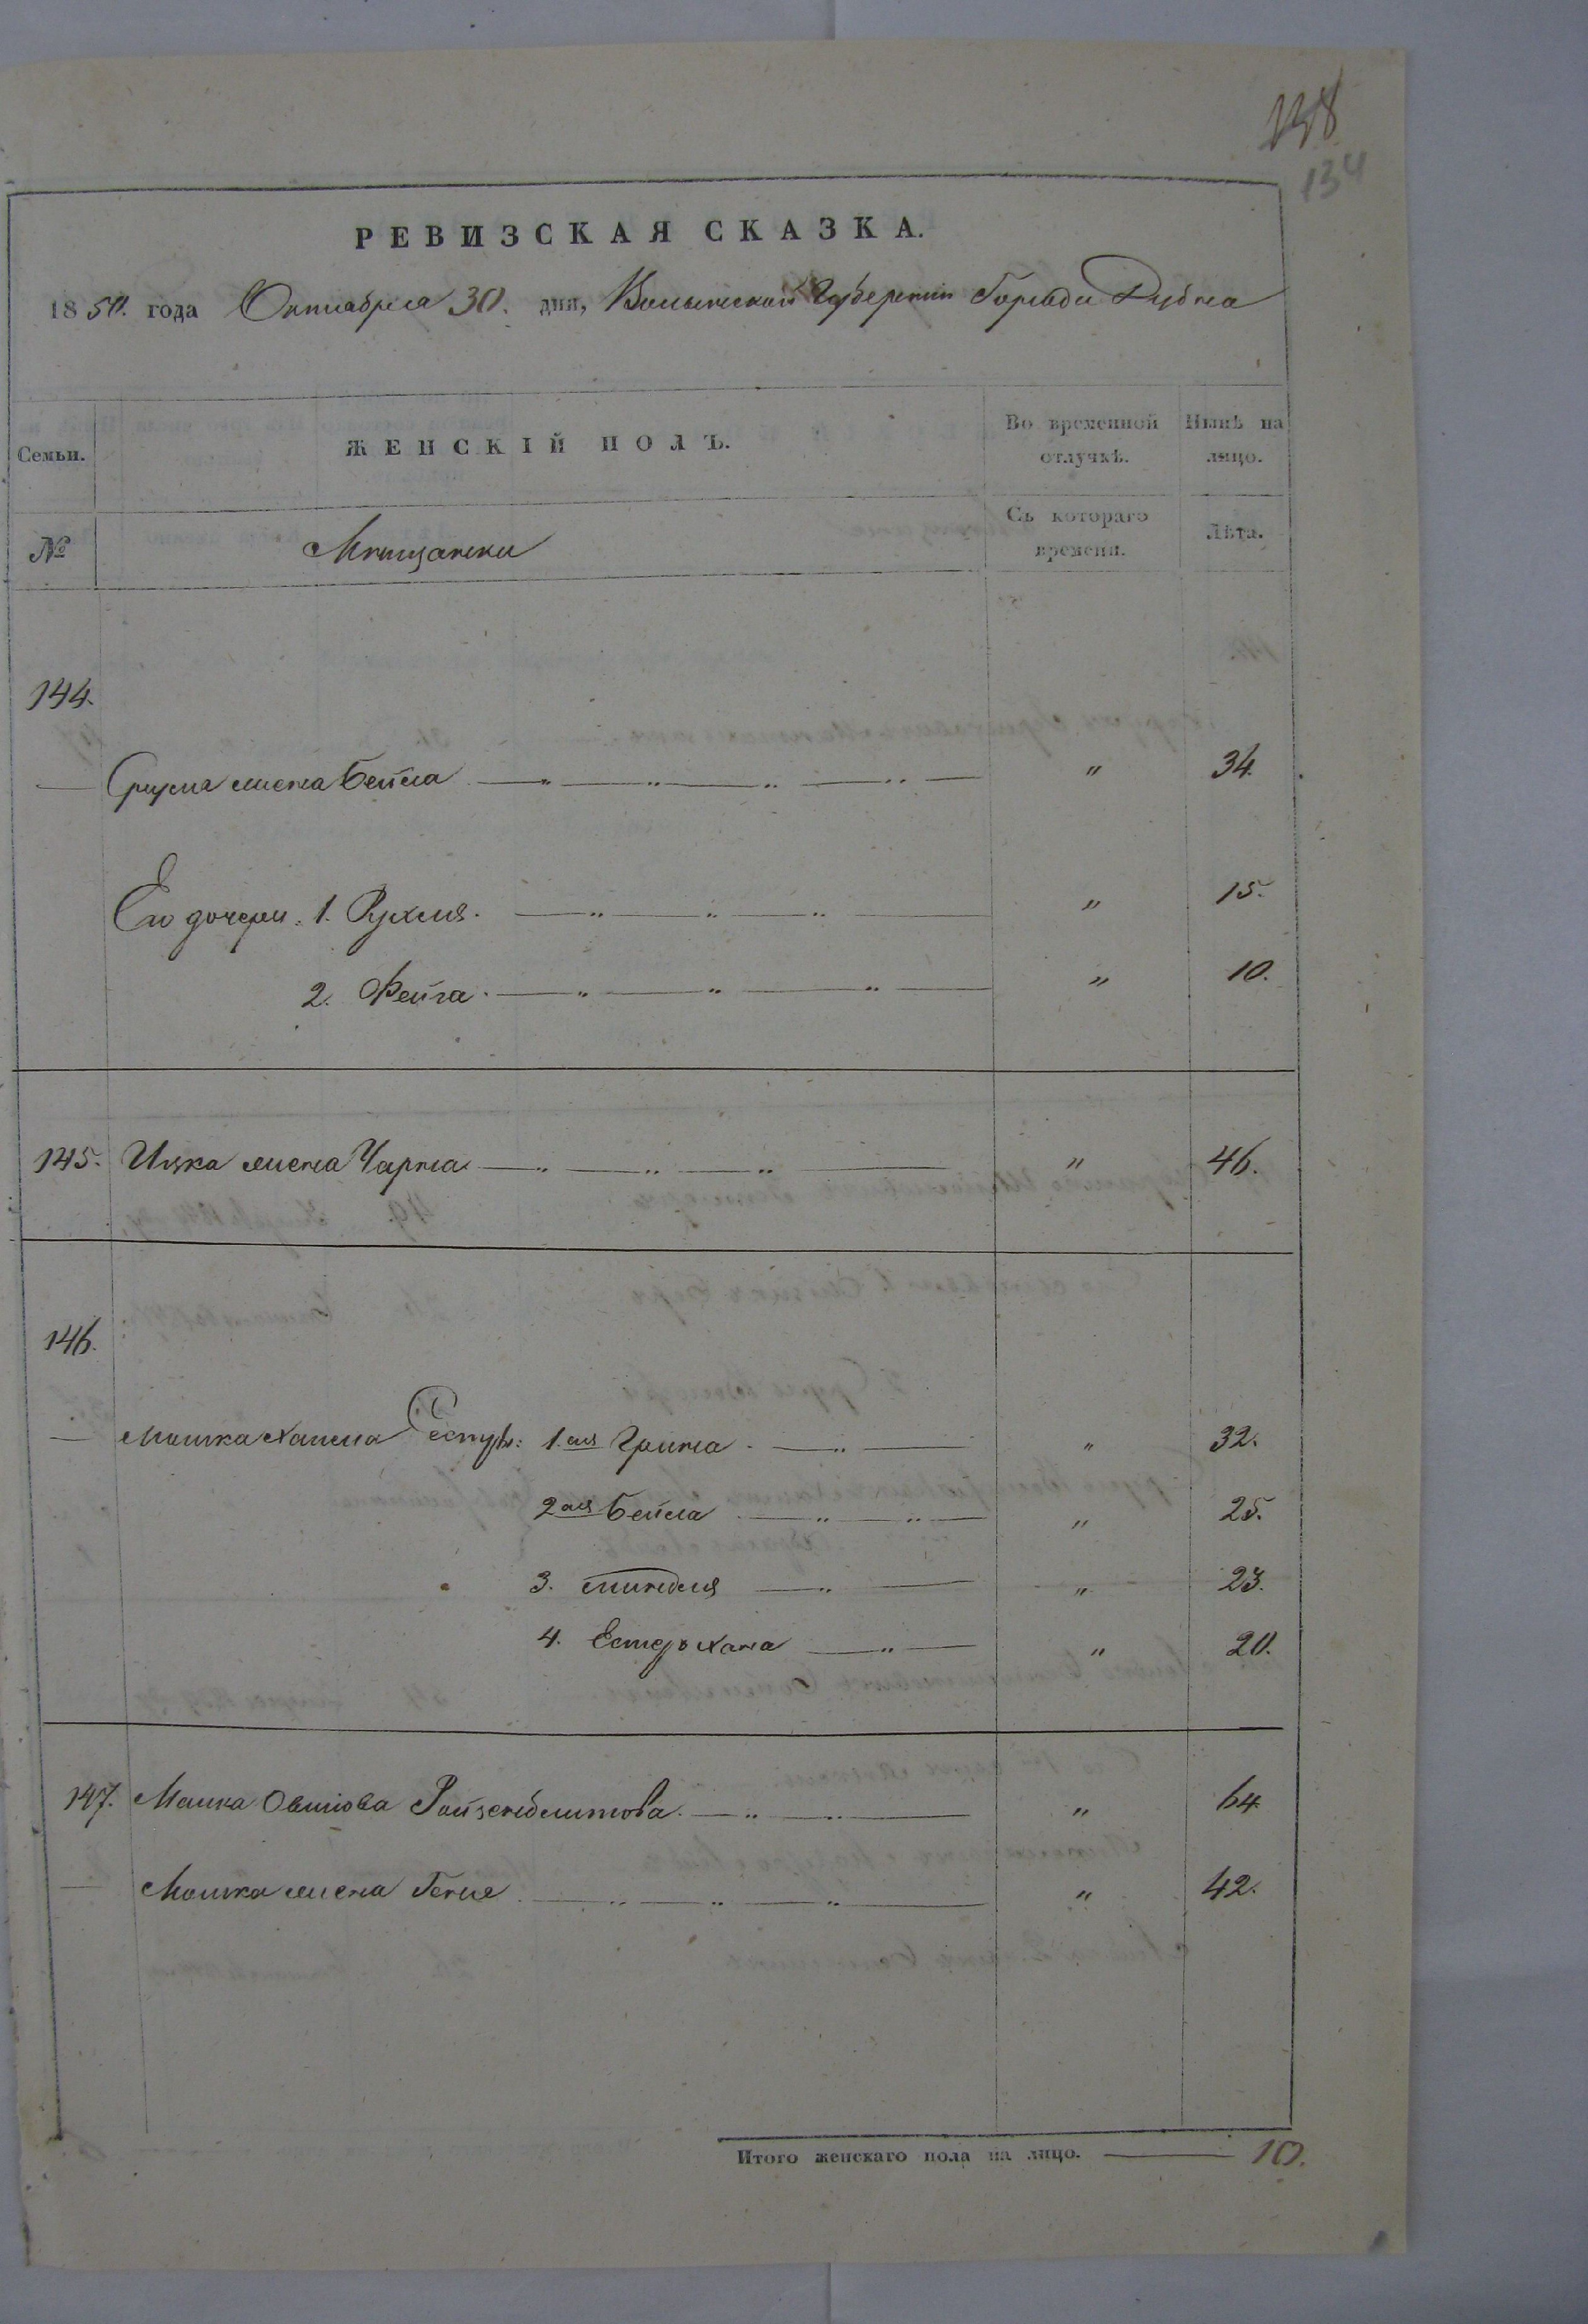 138
134
РЕВИЗСКАЯ СКАЗКА.
1850. года Октября 30. дня, Волынской Губернии Города Дубна
Семьи.
ЖЕНСКІЙ ПОЛЪ.
Во временной отлучкѣ.
Нынѣ на лицо.
№
Мѣщанки
Съ котораго времени.
Лѣта.
144.
Сруля жена Бейла " 34.
Его дочери: 1. Рухля. " 15.
2. Фейга. " 10.
145. Ицка жена Чарна " 46.
146.
Мошка Хаима Сестры: 1.ая Грина " 32.
2ая Бейла " 25.
3. Миндля " 23.
4. Естеръ Хана " 20.
147. Мошка Овшіова " 64.
Мошка жена Генце " 42.
Итого женскаго пола на лицо. 10.